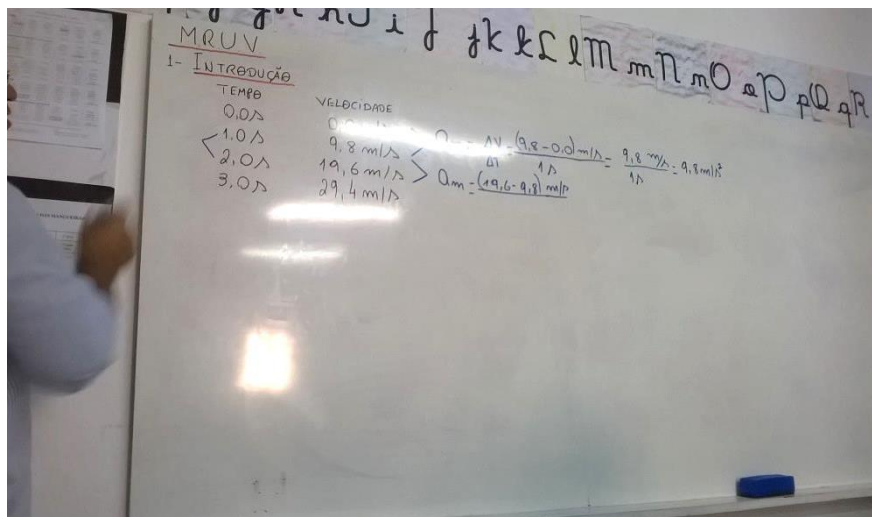 i j jK k L l M m N n O o P p Q q R
MRUV
1- INTRODUÇÃO
TEMPO VELOCIDADE
0,0s
1.0s 9,8 m/s
2,0s 19,6 m/s
3,0s 29,4 m/s
= ΔV/ΔT = (9,8-0,0) m/s / 1s = 9,8 m/s / 1s = 9,8 m/s²
am = (19,6-9,8) m/s